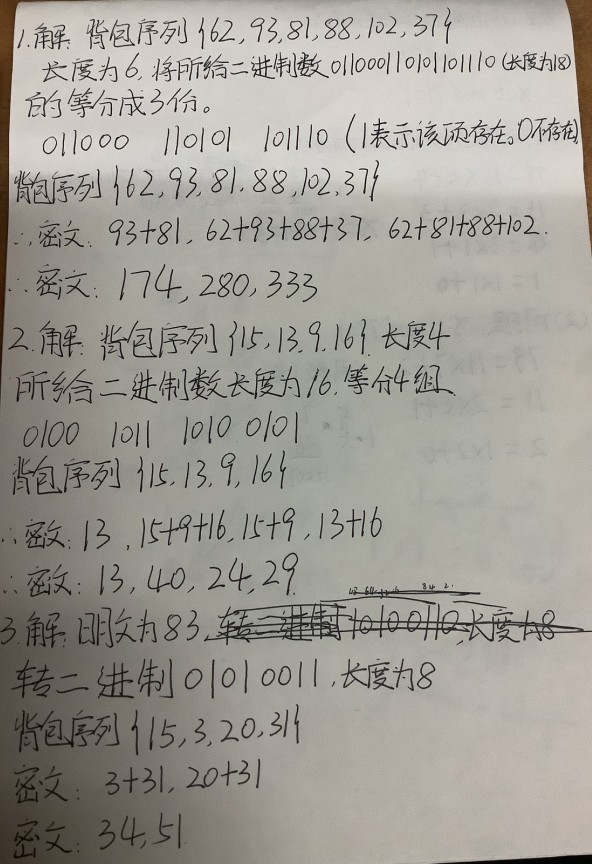 1.解: 背包序列{62,93,81,88,102,37}
长度为6,将所给二进制数011000110101101110(长度为18)
的等分成3份。
011000 110101 101110 (1表示该项存在。0不存在)
背包序列{62,93,81,88,102,37}
∴密文: 93+81, 62+93+88+37, 62+81+88+102.
∴密文: 174,280,333
2.解: 背包序列{15,13,9,16} 长度4
所给二进制数长度为16.等分4组
0100 1011 1010 0101
背包序列{15,13,9,16}
∴密文: 13, 15+9+16, 15+9, 13+16
∴密文: 13,40,24,29
3.解: 明文为83, 转二进制10100110,长度为8
转二进制01010011,长度为8
背包序列{15,3,20,31}
密文: 3+31, 20+31
密文: 34,51